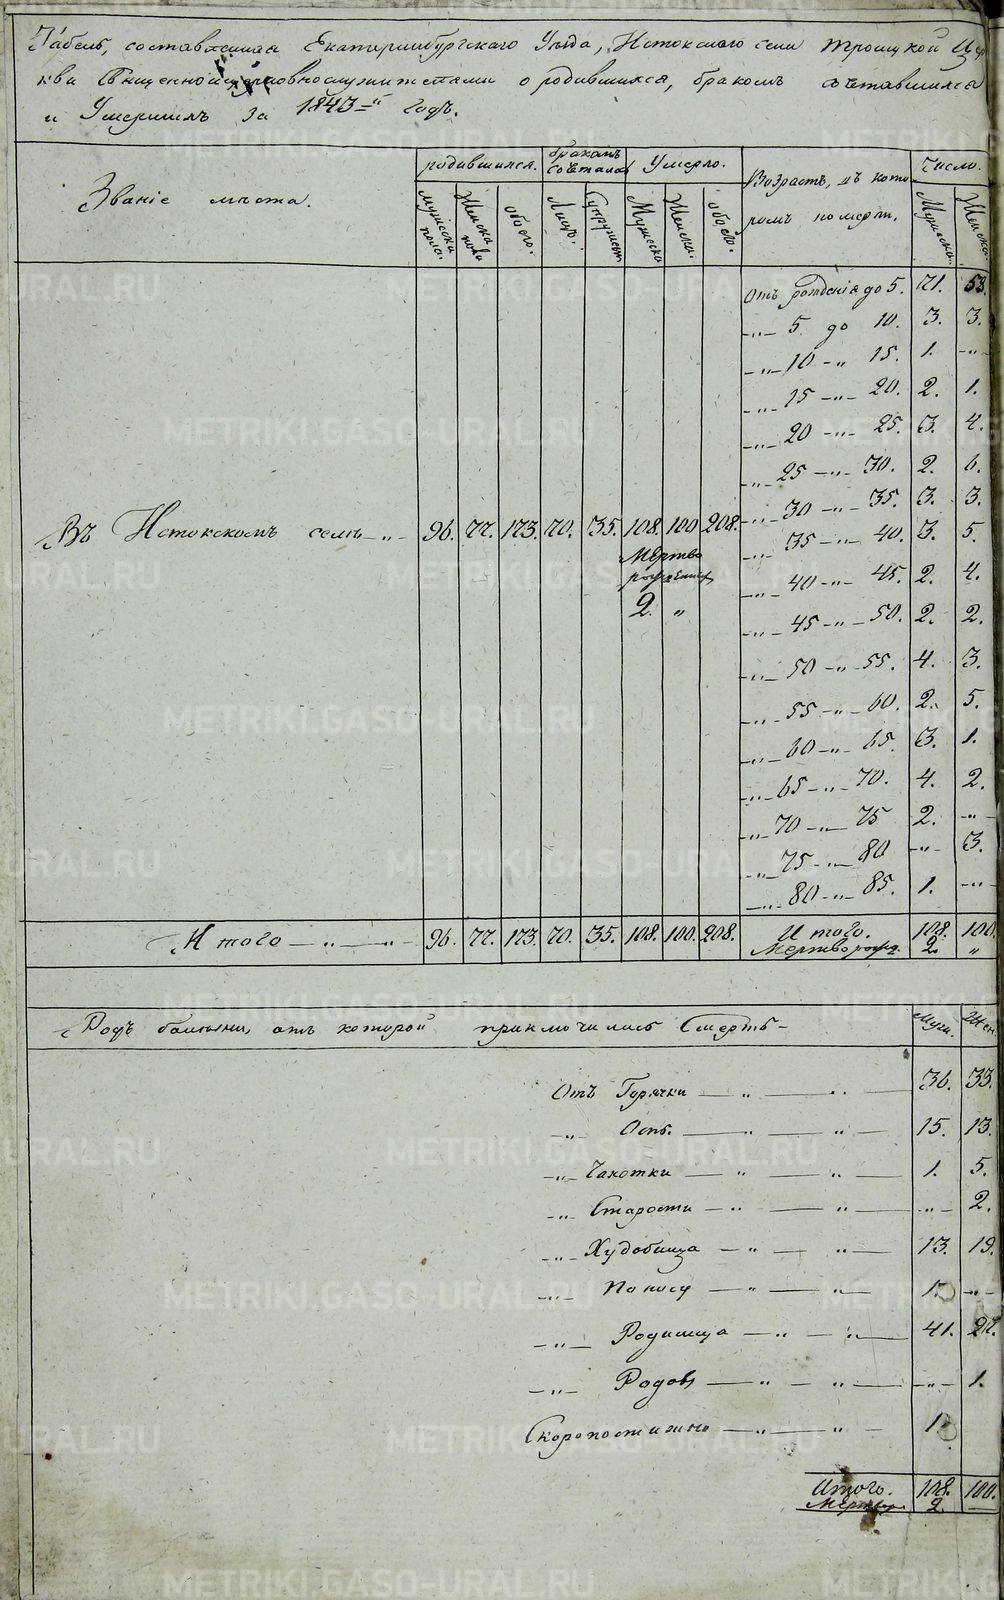 Табель, составленная Екатеринбургскаго Уѣзда, Истокскаго села Троицкой Цер
кви Священно церковнослужителями о родившихся, бракомъ сочетавшихся
и Умершихъ за 1843-й годъ.
Званіе мѣста.
родившихся.
бракомъ сочетал
Умерло.
Возрастъ, въ кото
ромъ померли.
Число.
Мужеска пола.
Женска пола
обоего.
Лицъ.
Супружест
Мужеска
Женска.
обоего.
Мужеска.
Женска.
Отъ рожденія до 5. 71. 53.
-"- 5 до 10. 3. 3.
-"- 10 -"- 15. 1. -"-
-"- 15 -"- 20. 2. 1.
-"- 20 -"- 25. 3. 4.
-"- 25 -"- 30. 2. 6.
-"- 30 -"- 35. 3. 3.
Въ Истокскомъ селѣ -"- 96. 77. 173. 70. 35. 108. 100 208.
-"- 35 -"- 40. 3. 5.
Мертво
рожденныхъ
2. "
-"- 40 -"- 45. 2. 4.
-"- 45 -"- 50. 2. 2.
-"- 50 -"- 55. 4. 3.
-"- 55 -"- 60. 2. 5.
-"- 60 -"- 65. 3. 1.
-"- 65 -"- 70. 4. 2.
-"- 70 -"- 75 2. -"-
-"- 75 -"- 80 -"- 3.
-"- 80 -"- 85. 1. -"-
Итого -"- -"- 96. 77. 173. 70. 35. 108. 100. 208. Итого. 108. 100.
Мертворожд. 2 "
Родъ болѣзни, отъ которой приключилась Смерть - Муж. Жен
Отъ Горячки -"- -"- 36. 33.
" Оспы. -"- -"- 15. 13.
-"- Чахотки -"- -"- 1. 5.
-"- Старости -"- -"- -"- 2.
-"- Худобища -"- -"- 13. 19.
-"- Поносу -"- -"- 1. -"-
-"- Родимца -"- -"- 41. 27.
-"- Родовъ -"- -"- -"- 1.
Скоропостижно -"- -"- 1.
Итого. 108. 100.
Мертвор. 2. —
METRIKI.GASO-URAL.RU